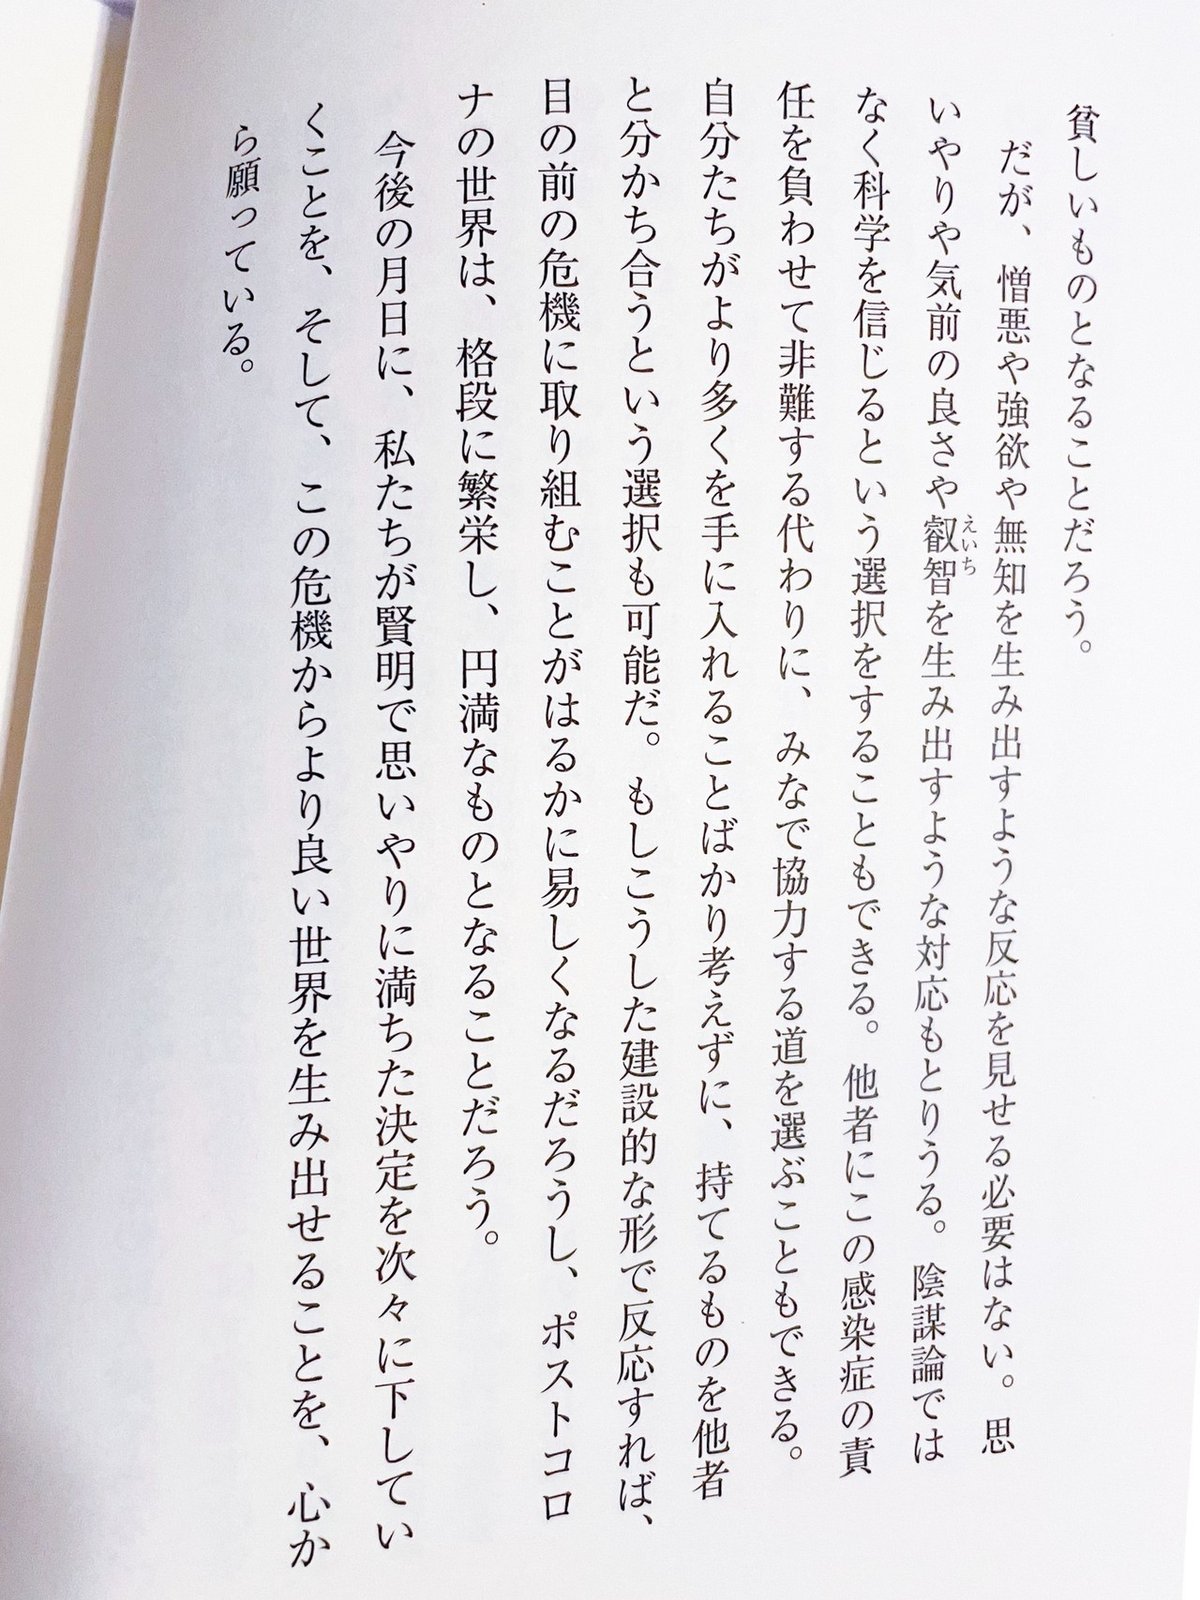 貧しいものとなることだろう。
だが、憎悪や強欲や無知を生み出すような反応を見せる必要はない。思
いやりや気前の良さや叡智を生み出すような対応もとりうる。陰謀論では
えいち
なく科学を信じるという選択をすることもできる。他者にこの感染症の責
任を負わせて非難する代わりに、みなで協力する道を選ぶこともできる。
自分たちがより多くを手に入れることばかり考えずに、持てるものを他者
と分かち合うという選択も可能だ。もしこうした建設的な形で反応すれば、
目の前の危機に取り組むことがはるかに易しくなるだろうし、ポストコロ
ナの世界は、格段に繁栄し、円満なものとなることだろう。
今後の月日に、私たちが賢明で思いやりに満ちた決定を次々に下してい
くことを、そして、この危機からより良い世界を生み出せることを、心か
ら願っている。